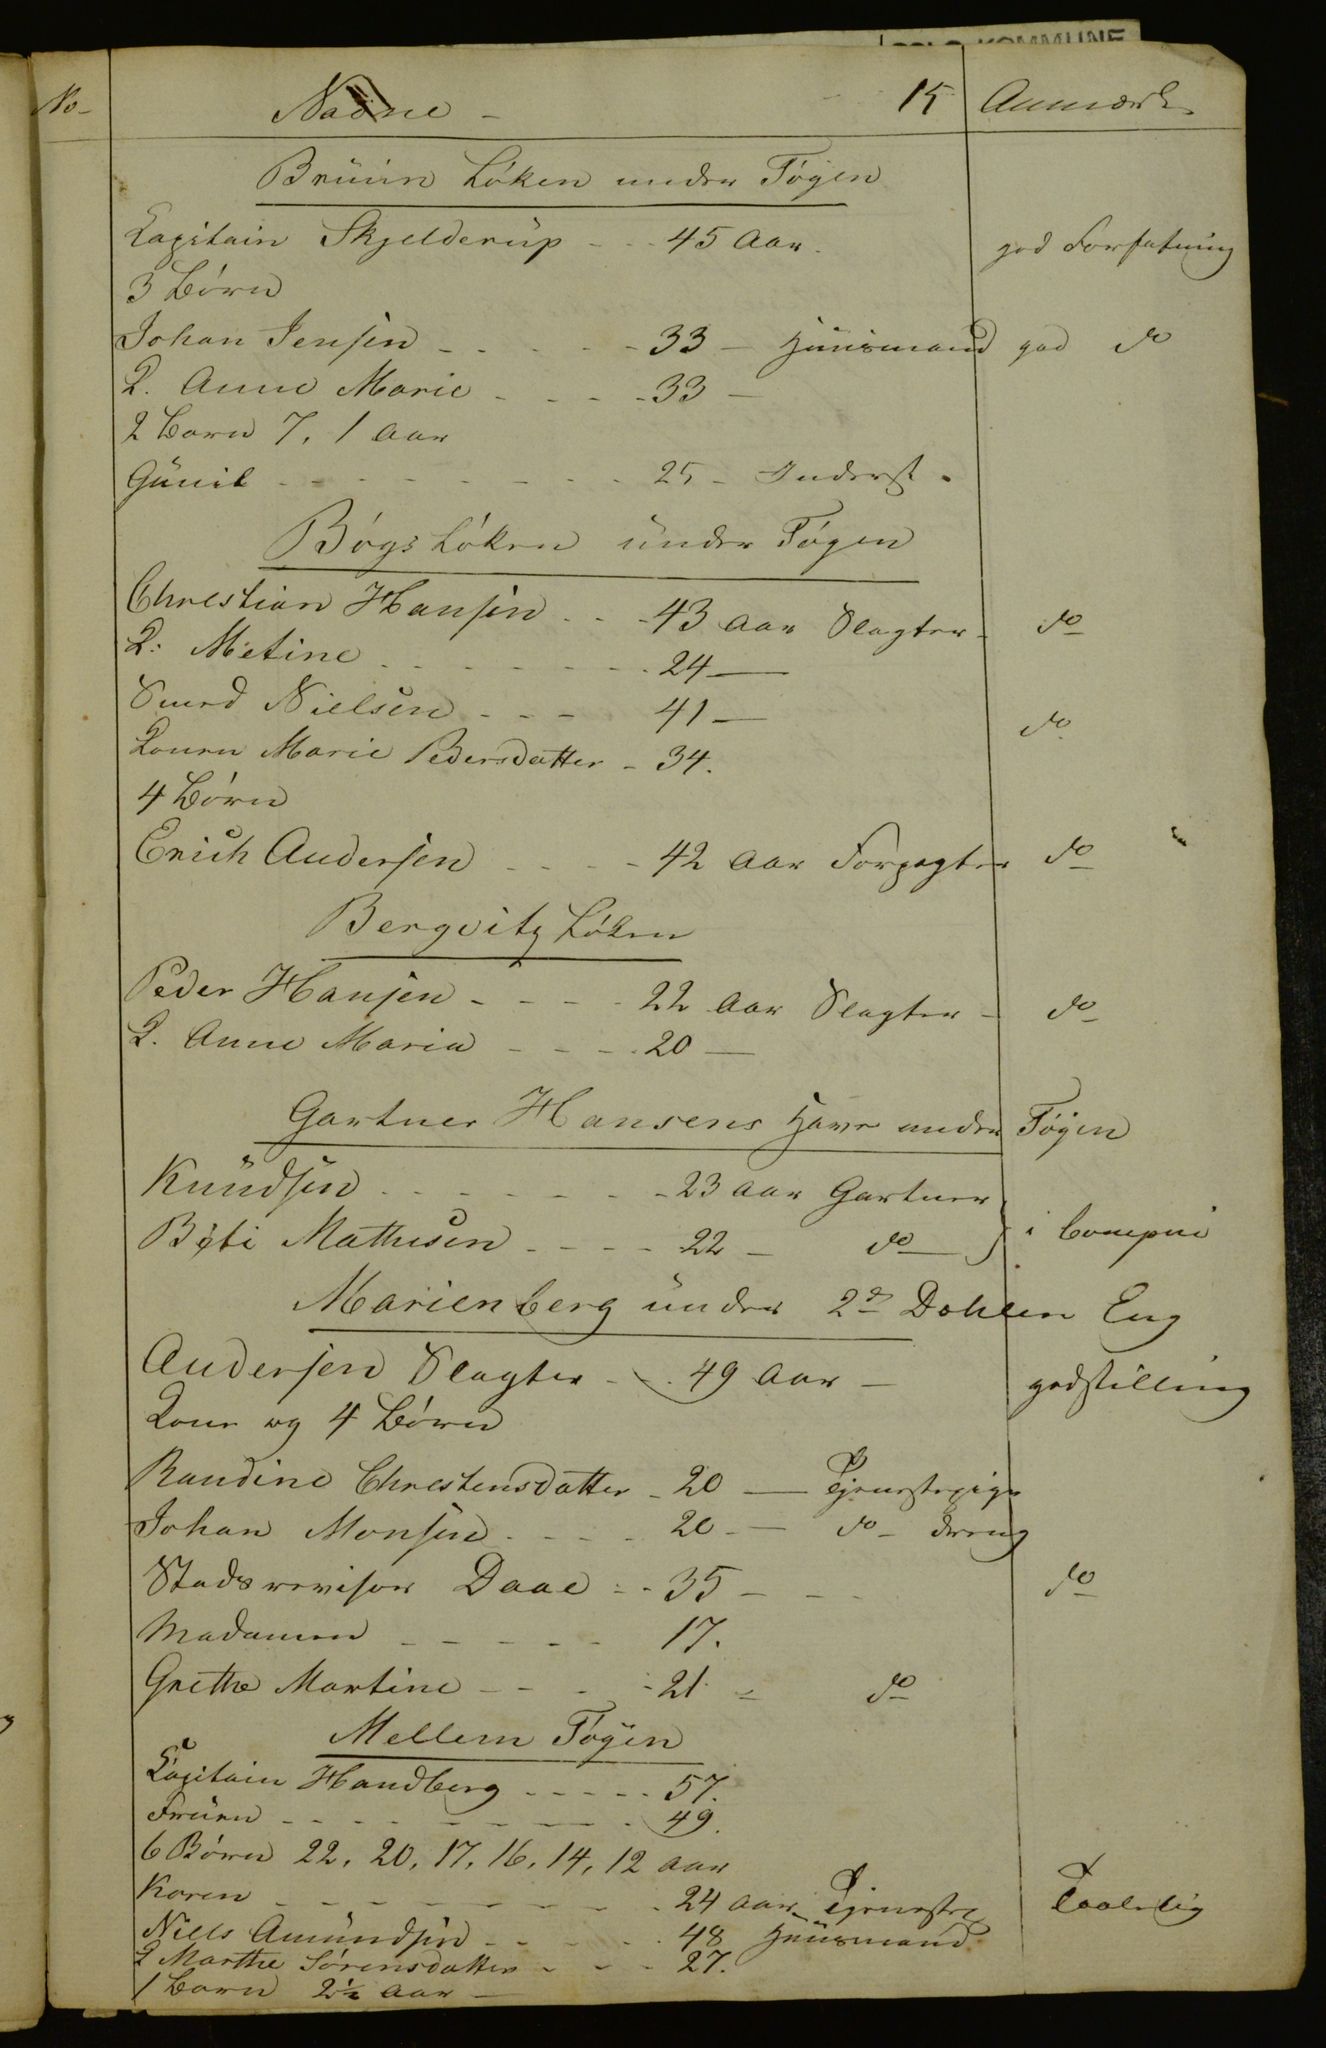 OSLO KOMMUNE
No Navne 15 Anmærk
Brüün Løken under Tøÿen
Capitain Skjelderup - - 45 Aar. god Forfatning
3 Børn
Johan Jensen - - - - - 33 - Huusmand god do
K. Anne Marie - - - - 33 -
2 Børn 7, 1 Aar
Günil - - - - - - - - 25 - Inderst -
Bøgs Løken under Tøÿen
Christian Hansen - - - 43 Aar Slagter - do
K. Metine - - - - - - - 24 -
Smed Nielsen - - - 41 - do
Konen Marie Pedersdatter - 34.
4 Børn
Erich Andersen - - - - 42 Aar Forpagter do
Bergvitz Løken
Peder Hansen - - - - 22 Aar Slagter - do
K. Anne Maria - - - - 20 -
Gartner Hansens Have under Tøÿen
Knüdsen - - - - - - - 23 Aar Gartner
Mathisen - - - - 22 - do } i Compni
Marienberg under 2d Dahlen Eng
Andersen Slagter - - 49 Aar - godstilling
Kone og 4 Børn
Randine Christensdatter - 20 - Tjenestepige
Johan Monsen - - - - 20 - do - dreng
Stadsrevisor Daae - - 35 - - - do
Madamen - - - - - 17.
Grethe Martine - - - - 21 - do
Mellem Tøÿen
Capitain Handberg - - - - - 57.
Fruen - - - - - - - - 49.
6 Børn 22, 20, 17, 16, 14, 12 Aar
Karen - - - - - - - - - 24 Aar Tjeneste Taalelig
Niels Amündsen - - - - - 48 Huusmand
K Marthe Sørensdatter - - - 27.
1 Barn 2½ Aar -